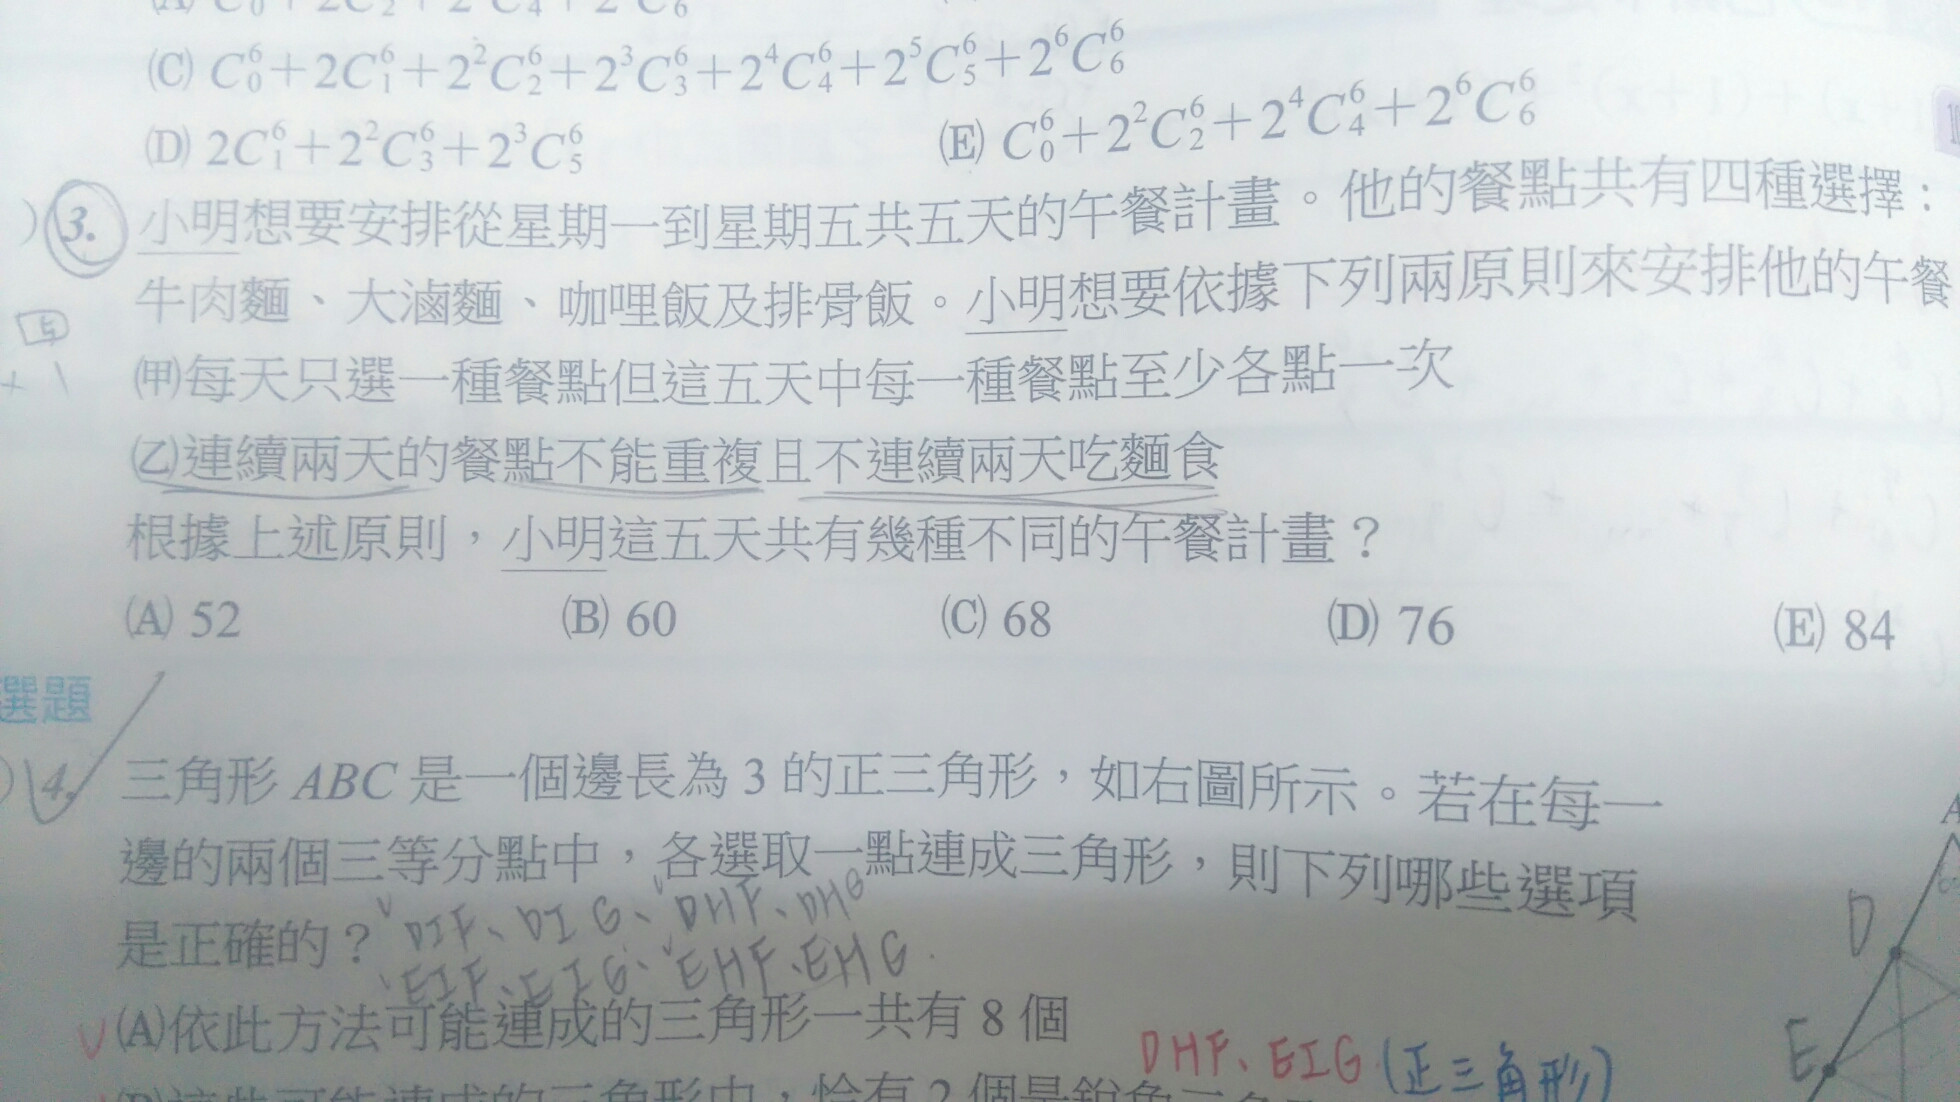 (C) C₀⁶+2C₁⁶+2²C₂⁶+2³C₃⁶+2⁴C₄⁶+2⁵C₅⁶+2⁶C₆⁶
(D) 2C₁⁶+2²C₃⁶+2³C₅⁶ (E) C₀⁶+2²C₂⁶+2⁴C₄⁶+2⁶C₆⁶
)3. 小明想要安排從星期一到星期五共五天的午餐計畫。他的餐點共有四種選擇：
牛肉麵、大滷麵、咖哩飯及排骨飯。小明想要依據下列兩原則來安排他的午餐
(甲)每天只選一種餐點但這五天中每一種餐點至少各點一次
(乙)連續兩天的餐點不能重複且不連續兩天吃麵食
根據上述原則，小明這五天共有幾種不同的午餐計畫？
(A) 52 (B) 60 (C) 68 (D) 76 (E) 84
選題
)4. 三角形 ABC 是一個邊長為 3 的正三角形，如右圖所示。若在每一
邊的兩個三等分點中，各選取一點連成三角形，則下列哪些選項
是正確的？
DIF、DIG、DHF、DHG
EIF、EIG、EHF、EHG.
(A)依此方法可能連成的三角形一共有 8 個
DHF、EIG (正三角形)
A
D
E